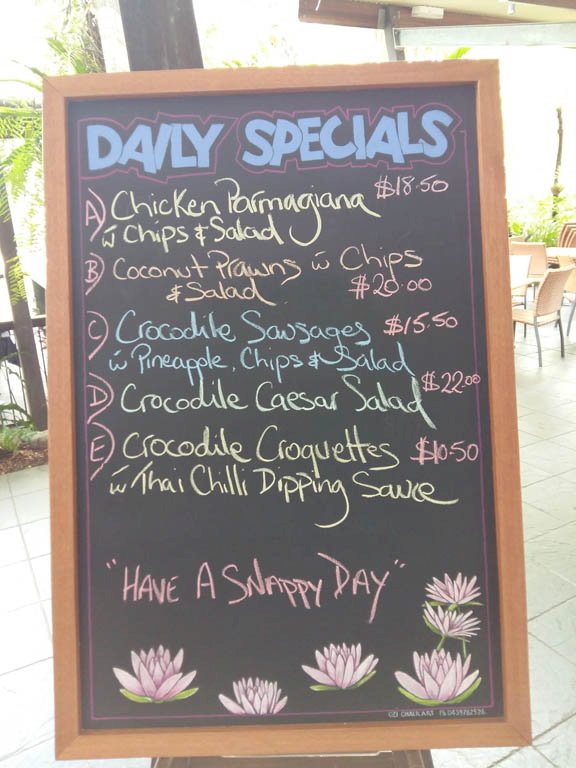 DAILY SPECIALS
A) Chicken Parmagiana $18.50
w̄ Chips & Salad
B) Coconut Prawns w̄ Chips
& Salad $20.00
C) Crocodile Sausages $15.50
w̄ Pineapple, Chips & Salad
D) Crocodile Caesar Salad $22.00
E) Crocodile Croquettes $10.50
w̄ Thai Chilli Dipping Sauce
"HAVE A SNAPPY DAY"
CHALKART